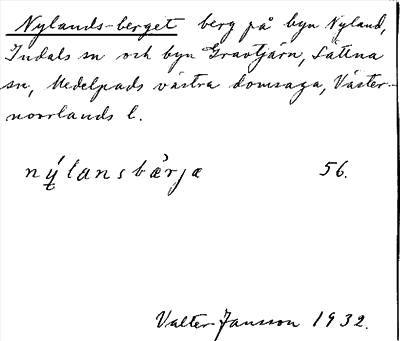 Nylands-berget berg på byn Nyland,
Indals sn och byn Gravtjärn, Sättna
sn, Medelpads västra domsaga, Väster-
norrlands l.
ný̨lansbärjæ 56.
Valter Jansson 1932.